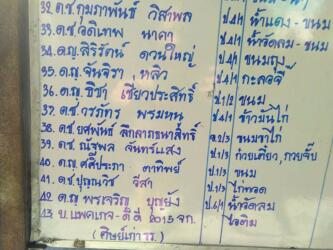 32. ด.ช.กุมภาพันธ์ วิสาพล ป.4/1 น้ำแดง - ขนม
33. ด.ช.อดิเทพ นาคา ป.4/1 น้ำอัดลม - ขนม
34. ด.ญ.สิริรัตน์ ดวนใหญ่ ป.4/1 ขนม
35. ด.ญ.จันจิรา หลิว ป.4/1 กะลอจี๊
36. ด.ญ.ธิชา เชี่ยวประสิทธิ์ ป.1/2 ขนม
37. ด.ช.วรภัทร พรมหนู ป.4/1 ข้าวมันไก่
38. ด.ช.ยศพนธ์ ป.2/3 ขนม
39. ด.ช.ณัฐพล จันทร์แสง ก๋วยเตี๋ยว, กวยจั๊บ
40. ด.ญ.ศศิประภา ตาทิพย์ ป.1/3 ขนม
41. ด.ช.ปุญณวิช วีสา ป.1/3 ไก่ทอด
42. ด.ญ.พรเจริญ บุญยัง ป.6/1 น้ำอัดลม
43. บ.แพคเกจ-ดีดี 2015 จก. ไอติม